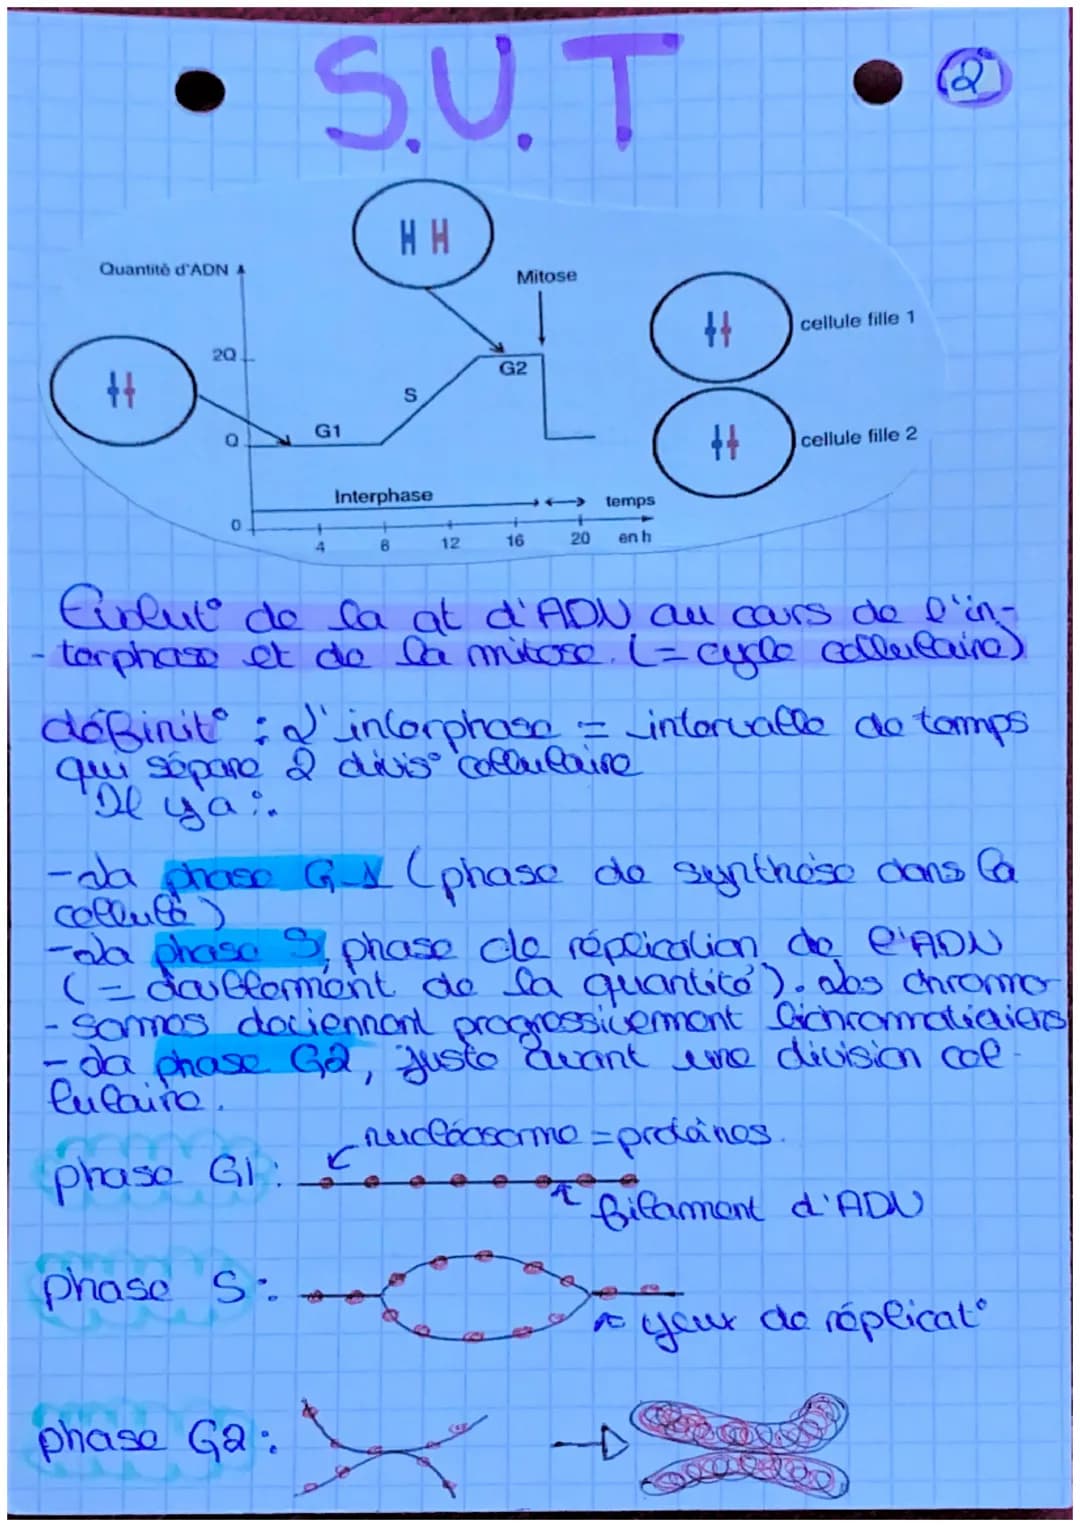 S.V.T
2
Quantité d'ADN
Mitose
2Q
G2
S
G1
Q
cellule fille 1
cellule fille 2
Interphase
temps
0
4
8
12
16
20
en h
Evolut° de la qt d'ADN au cours de l'in-
-terphase et de la mitose. (= cycle cellulaire)
définit° : L'interphase = intervalle de temps
qui sépare 2 divis° cellulaire
Il y a :.
-La phase G1 (phase de synthèse dans la
cellule)
-La phase S, phase de réplication de l'ADN
(= doublement de la quantité). Les chromo-
-somes deviennent progressivement bichromatidiens
-La phase G2, juste avant une division cel-
lulaire.
nucléosome = protéines.
phase G1 :
filament d'ADN
phase S :
yeux de réplicat°
phase G2 :